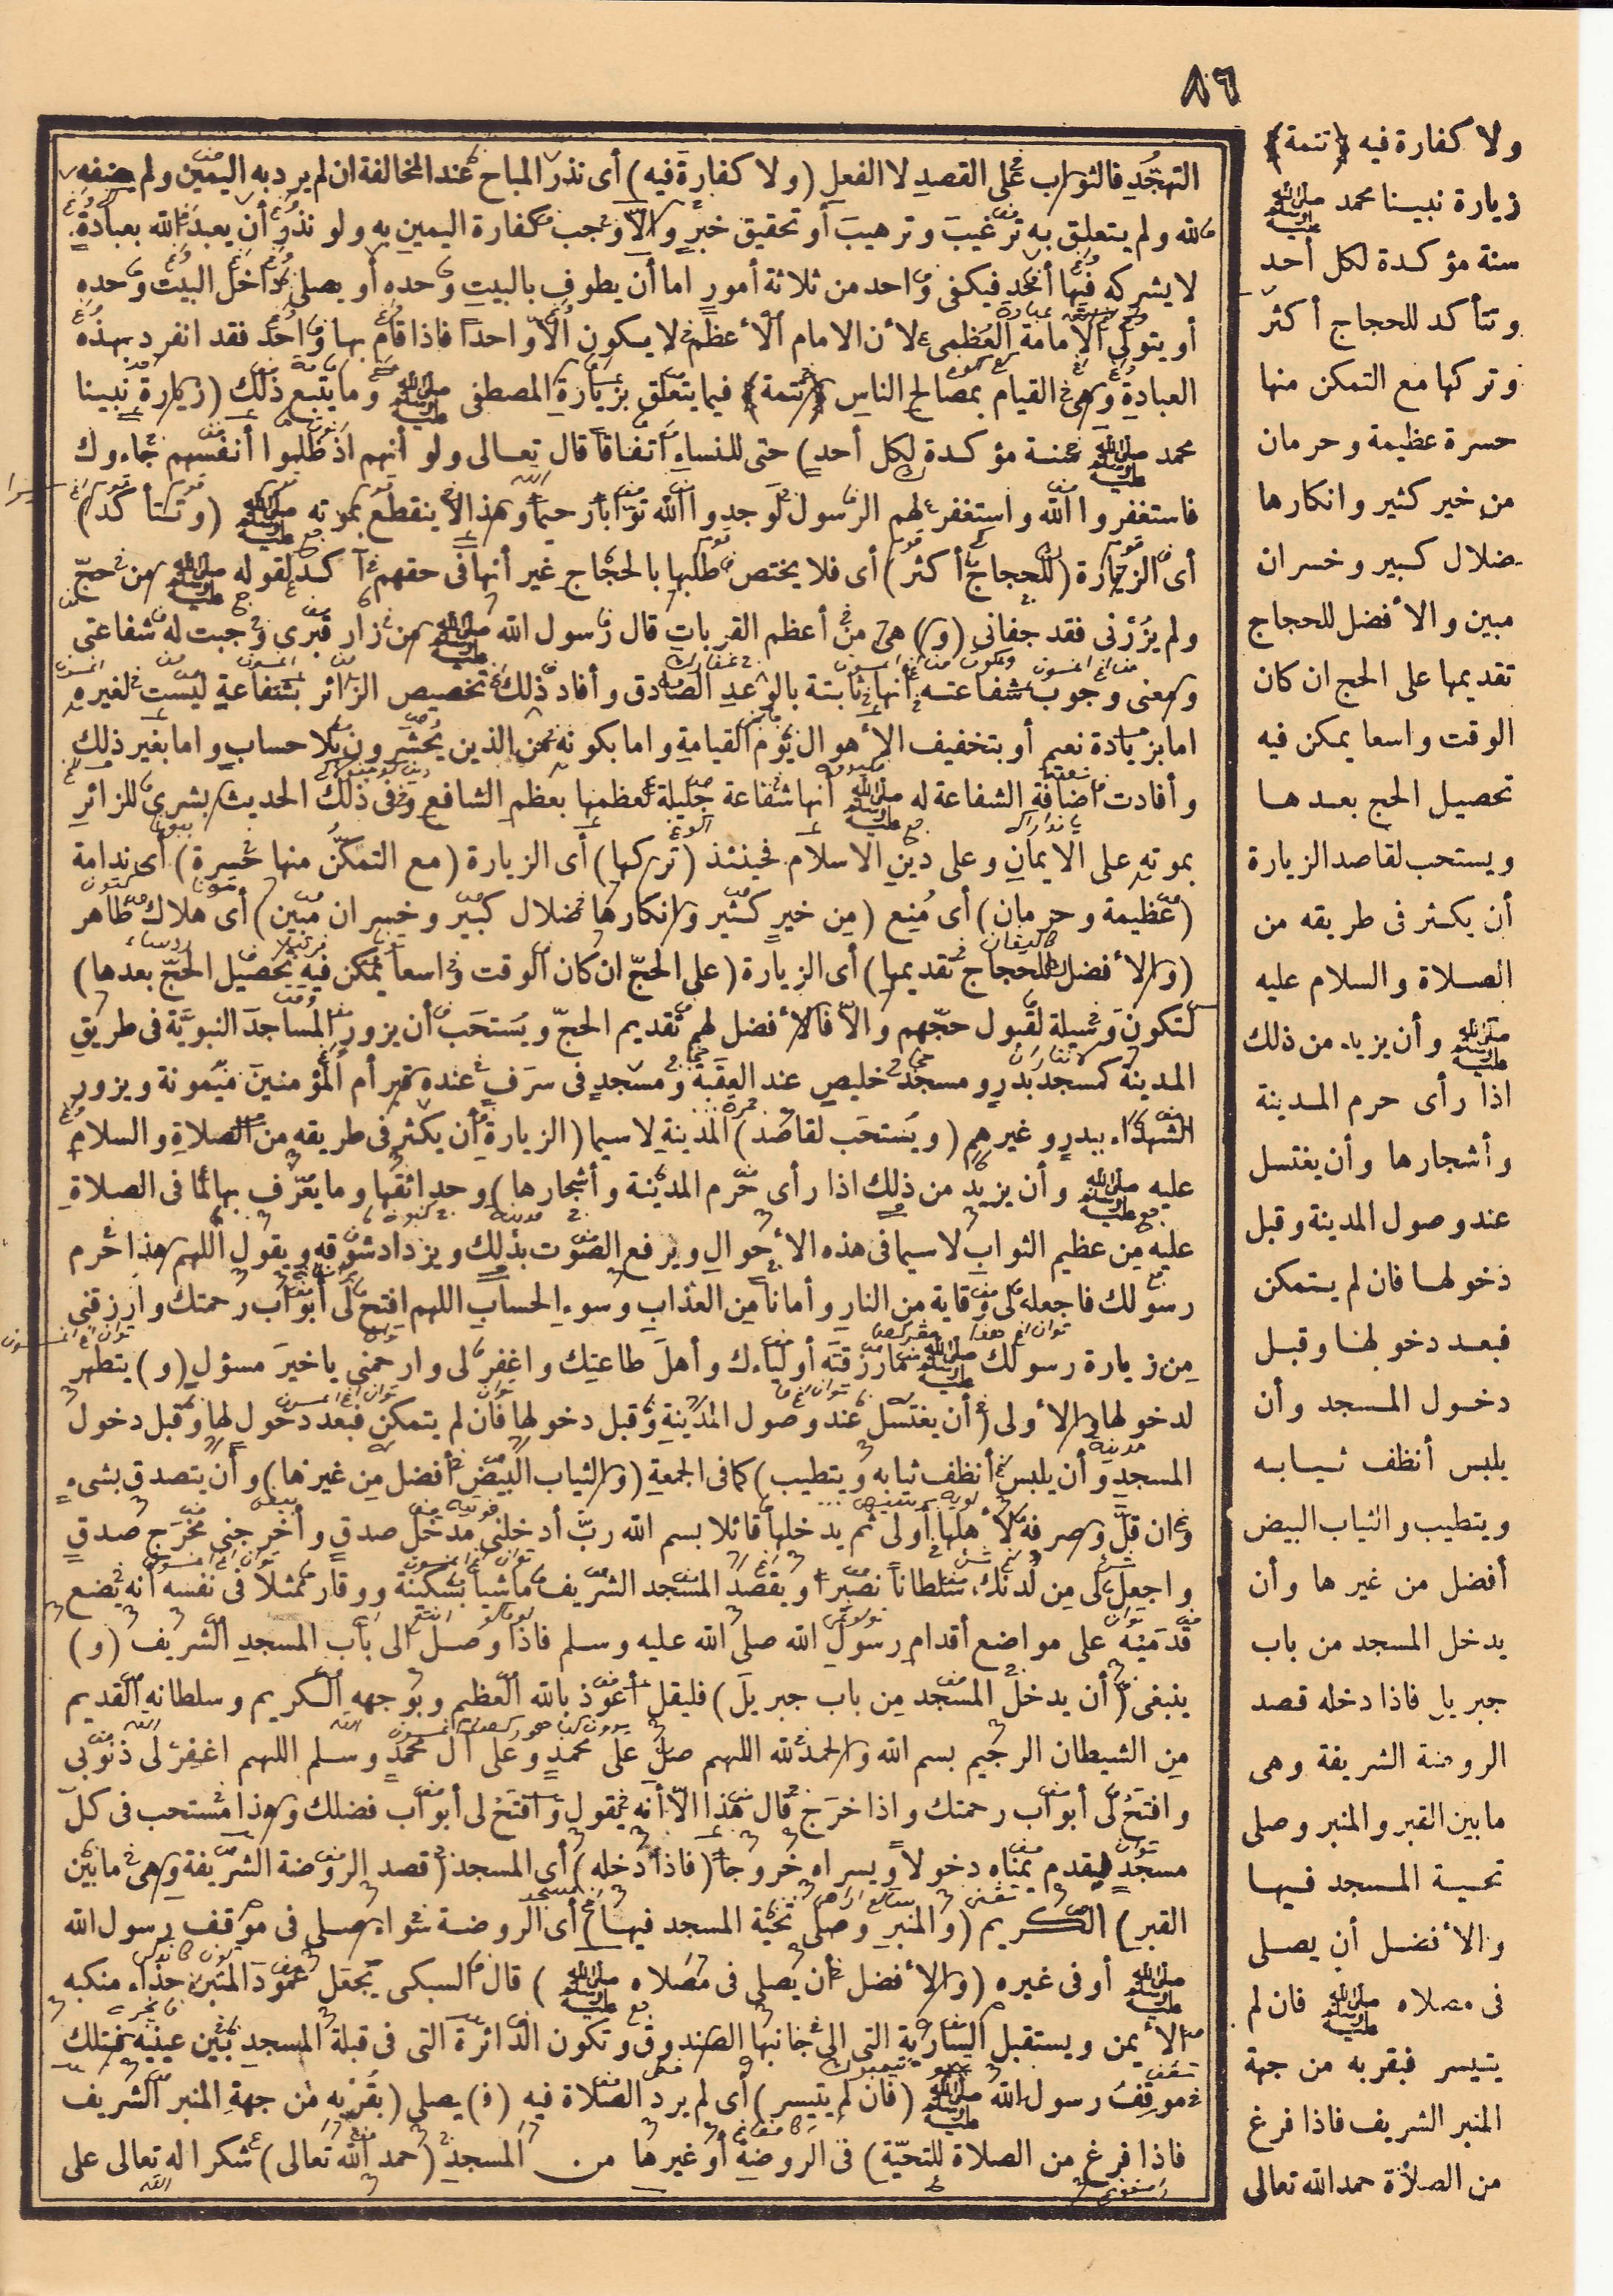 ٨٦
التهجد فالثواب على القصد لا الفعل (ولا كفارة فيه) أى نذر المباح عند المخالفة ان لم يرد به اليمين ولم يضفه
لله ولم يتعلق به ترغيب وترهيب أو تحقيق خبر والا وجب كفارة اليمين به ولو نذر أن يعبد الله بعبادة
لا يشركه فيها أحد فيكفى واحد من ثلاثة أمور اما أن يطوف بالبيت وحده أو يصلى داخل البيت وحده
أو يتولى الامامة العظمى لأن الامام الأعظم لا يكون الا واحدا فاذا قام بها واحد فقد انفرد بهذه
العبادة وهى القيام بمصالح الناس ﴿تتمة﴾ فيما يتعلق بزيارة المصطفى ﷺ وما يتبع ذلك (زيارة نبينا
محمد ﷺ سنة مؤكدة لكل أحد) حتى للنساء اتفاقا قال تعالى ولو أنهم اذ ظلموا أنفسهم جاءوك
فاستغفروا الله واستغفر لهم الرسول لوجدوا الله توابا رحيما وهذا لا ينقطع بموته ﷺ (وتتأكد)
أى الزيارة (للحجاج أكثر) أى فلا يختص طلبها بالحجاج غير أنها فى حقهم آكد لقوله ﷺ من حج
ولم يزرنى فقد جفانى (و) هى من أعظم القربات قال رسول الله ﷺ من زار قبرى وجبت له شفاعتى
ومعنى وجوب شفاعته أنها ثابتة بالوعد الصادق وأفاد ذلك تخصيص الزائر بشفاعة ليست لغيره
اما بزيادة نعيم أو بتخفيف الأهوال يوم القيامة واما بكونه من الذين يحشرون بلا حساب واما بغير ذلك
وأفادت اضافة الشفاعة له ﷺ أنها شفاعة جليلة لعظمها بعظم الشافع وفى ذلك الحديث بشرى للزائر
بموته على الايمان وعلى دين الاسلام فحينئذ (تركها) أى الزيارة (مع التمكن منها حسرة) أى ندامة
(عظيمة وحرمان) أى منع (من خير كثير وانكارها ضلال كبير وخسران مبين) أى هلاك ظاهر
(والأفضل للحجاج تقديمها) أى الزيارة (على الحج ان كان الوقت واسعا يمكن فيه تحصيل الحج بعدها)
لتكون وسيلة لقبول حجهم والا فالأفضل لهم تقديم الحج ويستحب أن يزور المساجد النبوية فى طريق
المدينة كمسجد بدر ومسجد خليص عند العقبة ومسجد فى سرف عنده قبر أم المؤمنين ميمونة ويزور
الشهداء ببدر وغيرهم (ويستحب لقاصد) المدينة لا سيما (الزيارة أن يكثر فى طريقه من الصلاة والسلام
عليه ﷺ وأن يزيد من ذلك اذا رأى حرم المدينة وأشجارها) وحدائقها وما يعرف بها لما فى الصلاة
عليه من عظيم الثواب لا سيما فى هذه الأحوال ويرفع الصوت بذلك ويزداد شوقه ويقول اللهم هذا حرم
رسولك فاجعله لى وقاية من النار وأمانا من العذاب وسوء الحساب اللهم افتح لى أبواب رحمتك وارزقنى
من زيارة رسولك ﷺ ما رزقته أولياءك وأهل طاعتك واغفر لى وارحمنى يا خير مسؤل (و) يتطهر
لدخولها والأولى (أن يغتسل عند وصول المدينة وقبل دخولها فان لم يتمكن فبعد دخول لها وقبل دخول
المسجد وأن يلبس أنظف ثيابه ويتطيب) كما فى الجمعة (والثياب البيض أفضل من غيرها) وأن يتصدق بشىء
وان قل وصرفه لأهلها أولى ثم يدخلها قائلا بسم الله رب أدخلنى مدخل صدق وأخرجنى مخرج صدق
واجعل لى من لدنك سلطانا نصيرا ويقصد المسجد الشريف ماشيا بسكينة ووقار ممثلا فى نفسه أنه يضع
قدميه على مواضع أقدام رسول الله صلى الله عليه وسلم فاذا وصل الى باب المسجد الشريف (و)
ينبغى (أن يدخل المسجد من باب جبريل) فليقل أعوذ بالله العظيم وبوجهه الكريم وسلطانه القديم
من الشيطان الرجيم بسم الله والحمد لله اللهم صل على محمد وعلى آل محمد وسلم اللهم اغفر لى ذنوبى
وافتح لى أبواب رحمتك واذا خرج قال هذا الا أنه يقول وافتح لى أبواب فضلك وهذا مستحب فى كل
مسجد فيقدم يمناه دخولا ويسراه خروجا (فاذا دخله) أى المسجد (قصد الروضة الشريفة وهى ما بين
القبر) الكريم (والمنبر وصلى تحية المسجد فيها) أى الروضة سواء صلى فى موقف رسول الله
ﷺ أو فى غيره (والأفضل أن يصلى فى مصلاه ﷺ) قال السبكى يجعل عمود المنبر حذاء منكبه
الأيمن ويستقبل السارية التى الى جانبها الصندوق وتكون الدائرة التى فى قبلة المسجد بين عينيه فتلك
موقف رسول الله ﷺ (فان لم يتيسر) أى لم يرد الصلاة فيه (ف) يصلى (بقربه من جهة المنبر الشريف
فاذا فرغ من الصلاة للتحية) فى الروضة أو غيرها من المسجد (حمد الله تعالى) شكرا له تعالى على
ولا كفارة فيه ﴿تتمة﴾
زيارة نبينا محمد ﷺ
سنة مؤكدة لكل أحد
وتتأكد للحجاج أكثر
وتركها مع التمكن منها
حسرة عظيمة وحرمان
من خير كثير وانكارها
ضلال كبير وخسران
مبين والأفضل للحجاج
تقديمها على الحج ان كان
الوقت واسعا يمكن فيه
تحصيل الحج بعدها
ويستحب لقاصد الزيارة
أن يكثر فى طريقه من
الصلاة والسلام عليه
ﷺ وأن يزيد من ذلك
اذا رأى حرم المدينة
وأشجارها وأن يغتسل
عند وصول المدينة وقبل
دخولها فان لم يتمكن
فبعد دخولها وقبل
دخول المسجد وأن
يلبس أنظف ثيابه
ويتطيب والثياب البيض
أفضل من غيرها وأن
يدخل المسجد من باب
جبريل فاذا دخله قصد
الروضة الشريفة وهى
ما بين القبر والمنبر وصلى
تحية المسجد فيها
والأفضل أن يصلى
فى مصلاه ﷺ فان لم
يتيسر فبقربه من جهة
المنبر الشريف فاذا فرغ
من الصلاة حمد الله تعالى